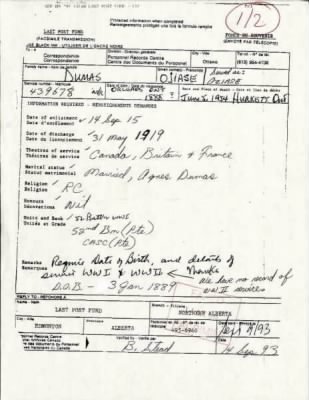 1/2
LAST POST FUND
(FACSIMILE TRANSMISSION)
USE BLACK INK - UTILISER DE L'ENCRE NOIRE
Protected information when completed
Renseignements protégés une fois la formule remplie
FONDS DU SOUVENIR
(ENVOYÉ PAR TÉLÉCOPIE)
Correspondence
Correspondance
Personnel Records Centre
Centre des Documents du Personnel
Ottawa
DUMAS
OZIASE
Served as:
OZIASE
Service number
439678
ORLEANS, ONT
1888 ?
JUNE 5, 1934 HURKETT Ont
INFORMATION REQUIRED - RENSEIGNEMENTS DEMANDÉS
Date of enlistment
Date d'enrôlement
14 Sep 15
Date of discharge
31 May 1919
Theatres of service
Théâtres de service
Canada, Britain & France
Marital status
Statut matrimonial
Married, Agnes Dumas
Religion
Religion
RC
Honours
Décorations
Nil
Units and Rank / 52 Battn WWI
Unités et Grade
52nd Bn (Pte)
CASC (Pte)
Remarks
Remarques
Require Date of Birth, and details of
service WWI & WWII Thanks
D.O.B. - 3 Jan 1889
We have no record of
WWII services
REPLY TO - RÉPONDRE À
LAST POST FUND
NORTHERN ALBERTA
EDMONTON
ALBERTA
495-6960
B. Stead
14 Sep 93